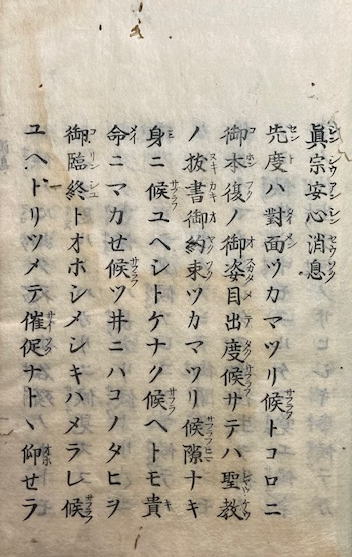 眞宗安心消息
先度ハ對面ツカマツリ候トコロニ
御本復ノ御姿目出度候サテハ聖教
ノ拔書御約束ツカマツリ候隙ナキ
身ニ候ユヘシトケナク候ヘトモ貴
命ニマカせ候ツ井ニハコノタヒヲ
御臨終トオホシメシキハメラレ候
ユヘトリツメテ催促ナトヽ仰せラ